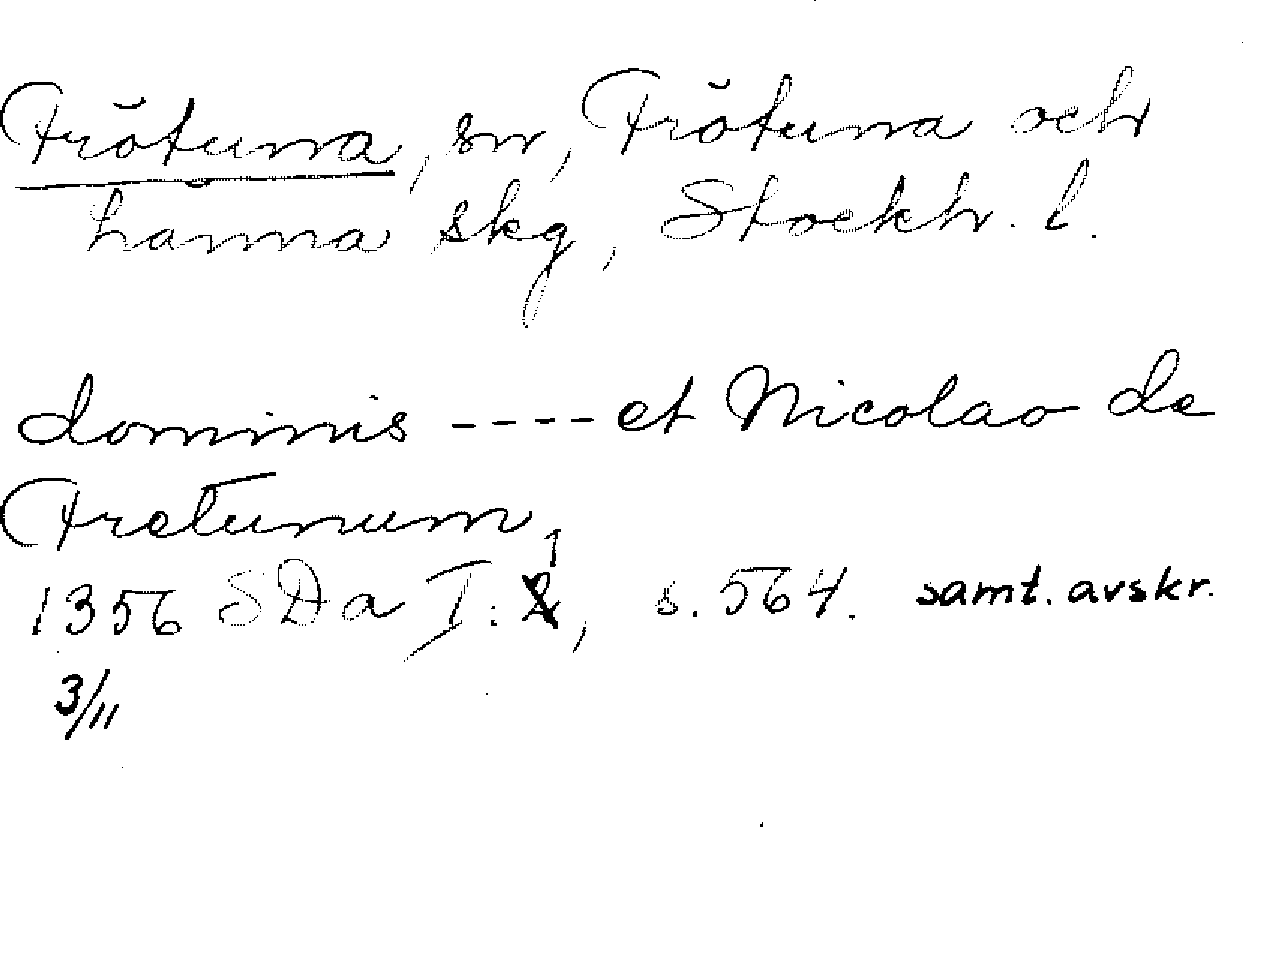 Frötuna, sn, Frötuna och
Länna skg, Stockh. l.
dominis ---- et Nicolao de
Fretunum,
1356 SDa I: 1, s. 564. samt. avskr.
3/11